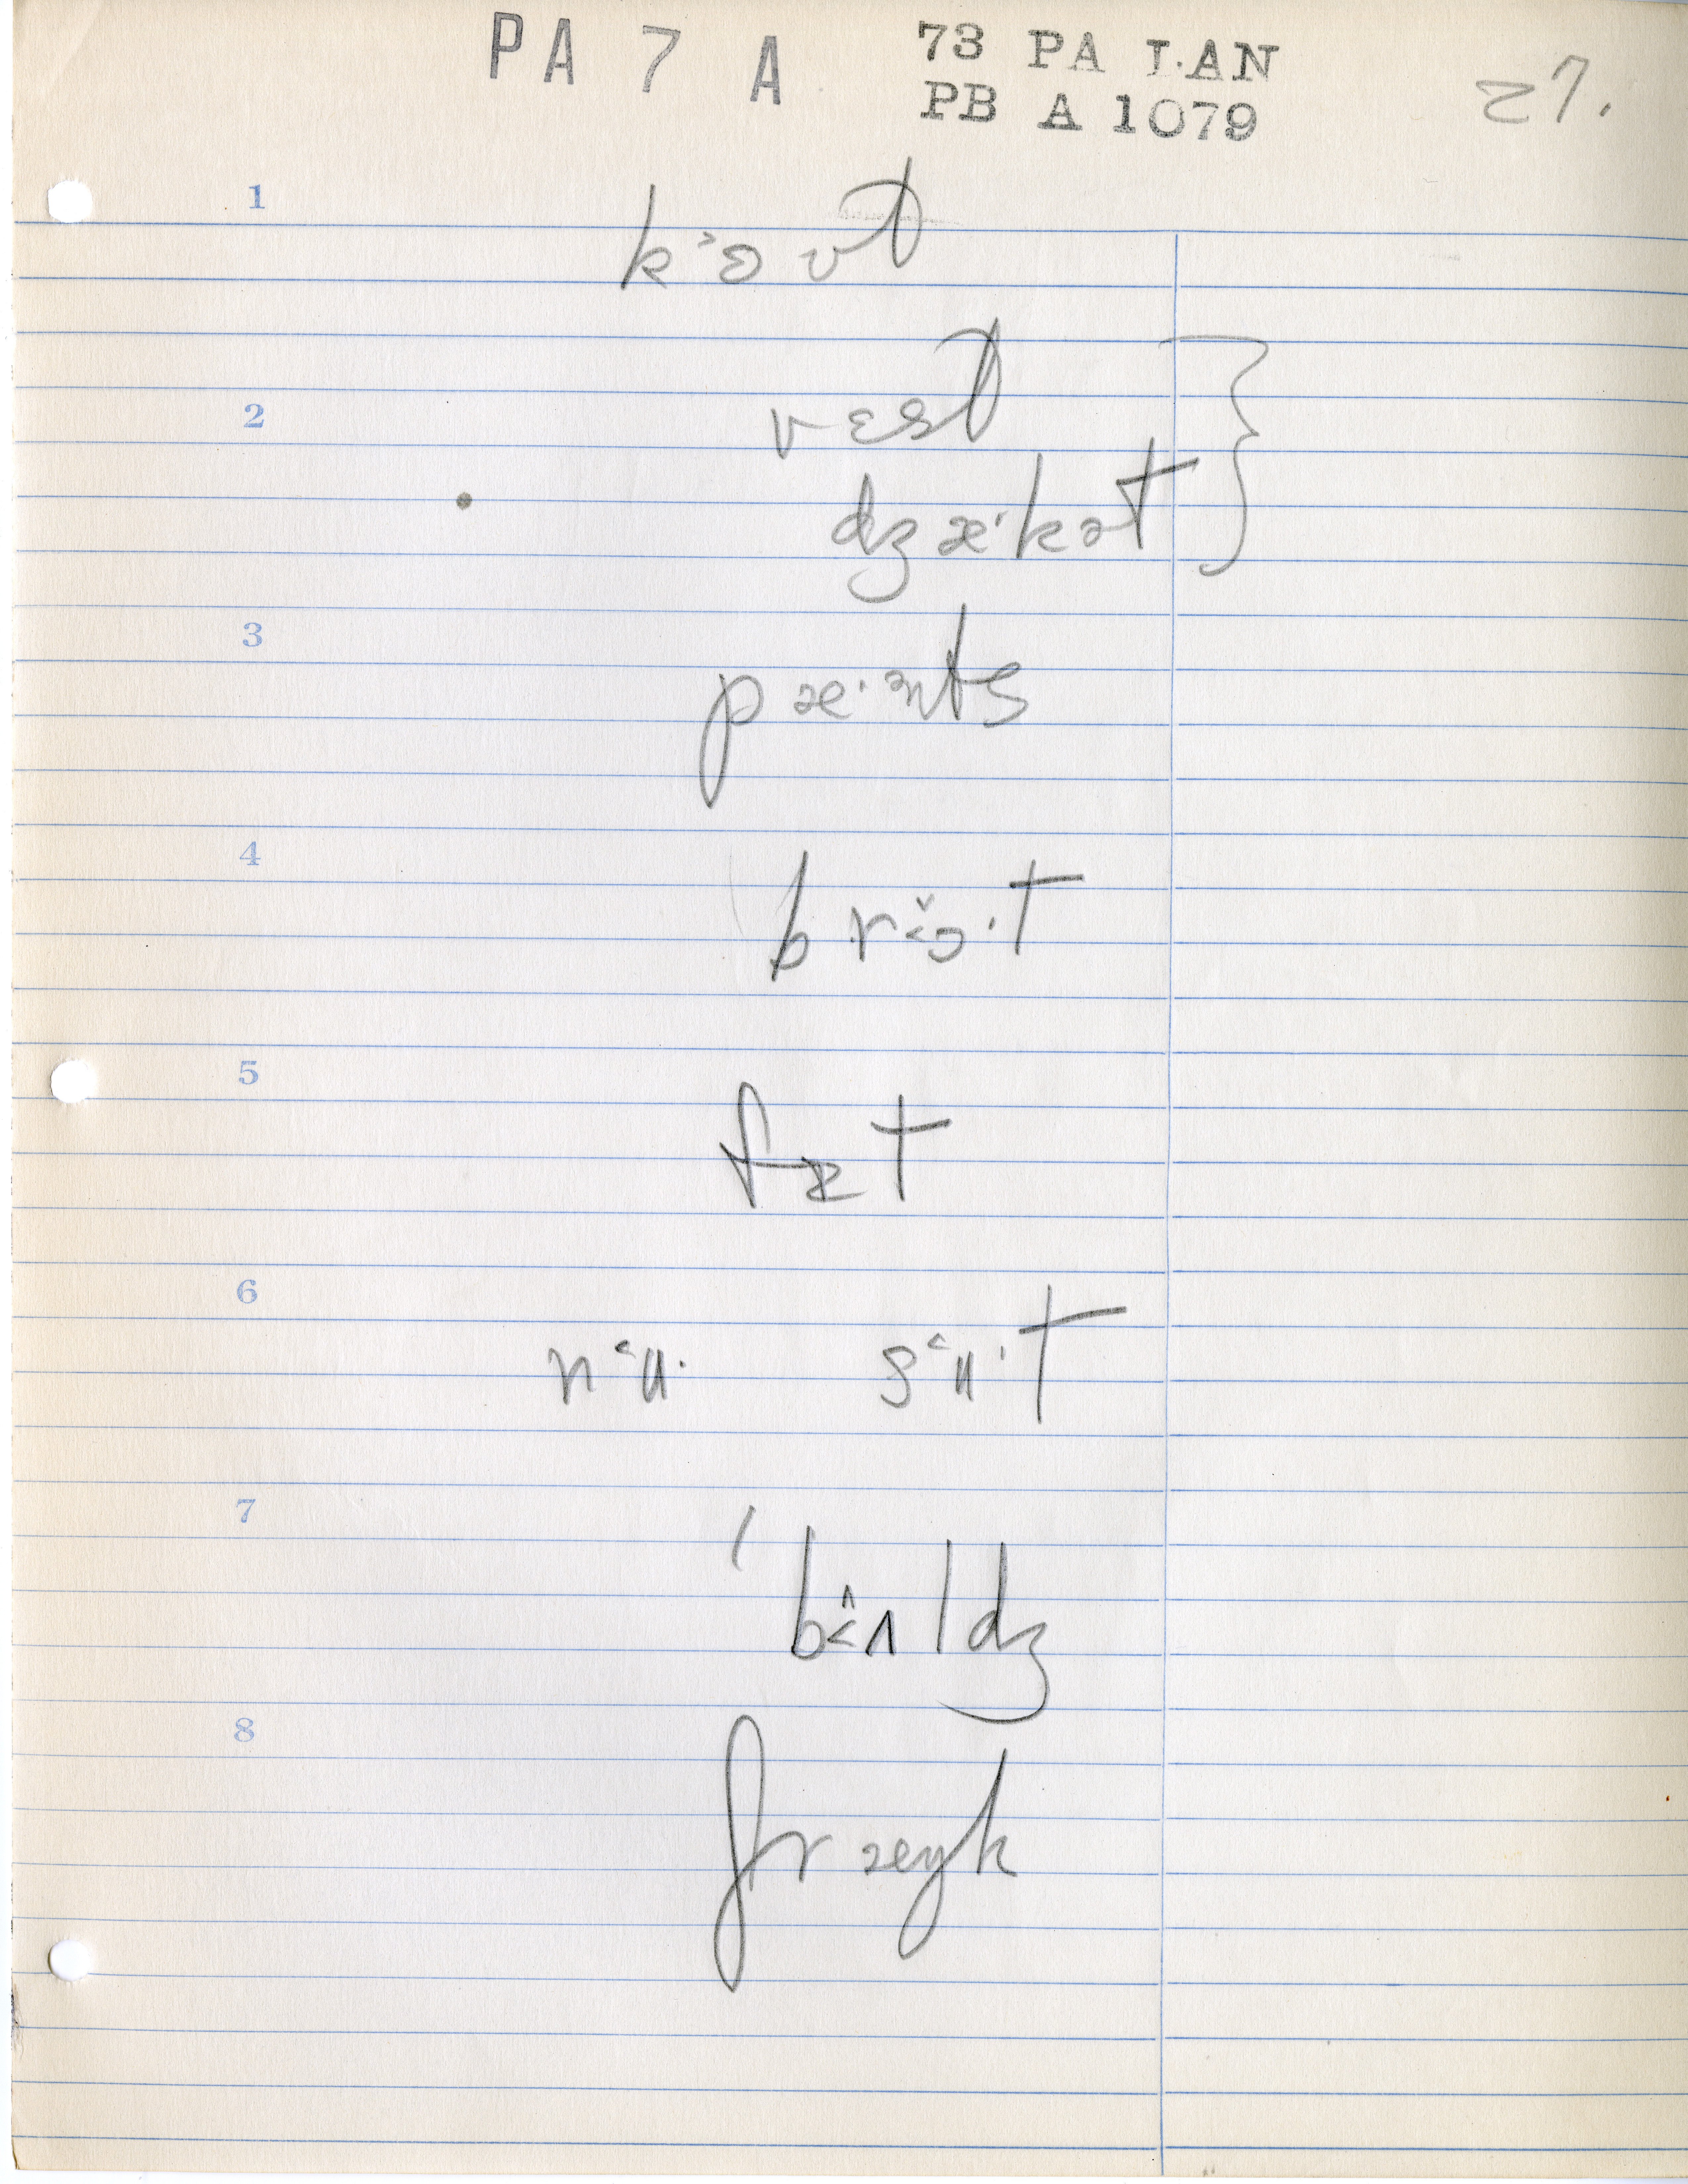 PA 7 A
73 PA LAN
PB A 1079
27.
1
k˃ɵʊt
2
vɛst
dʒæ·kət
3
pæ·ənts
4
br˂ɔ̌·t
5
fɪt
6
n˂ʉ· s˂ʉ·t
7
bʌldʒ
8
fræɣk